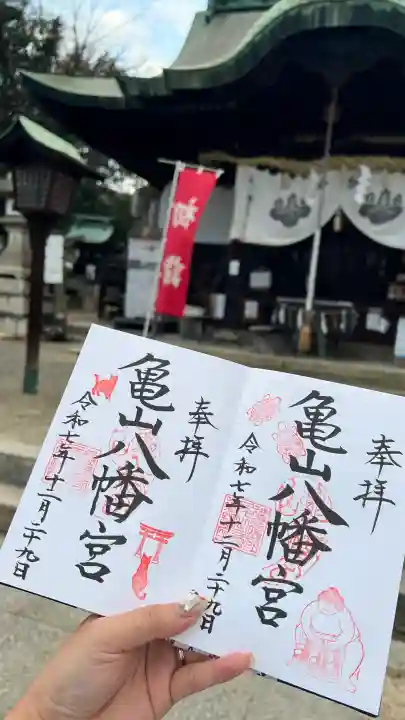 初詣
奉拝
亀山八幡宮
令和七年十二月二十九日
奉拝
亀山八幡宮
令和七年十二月二十九日